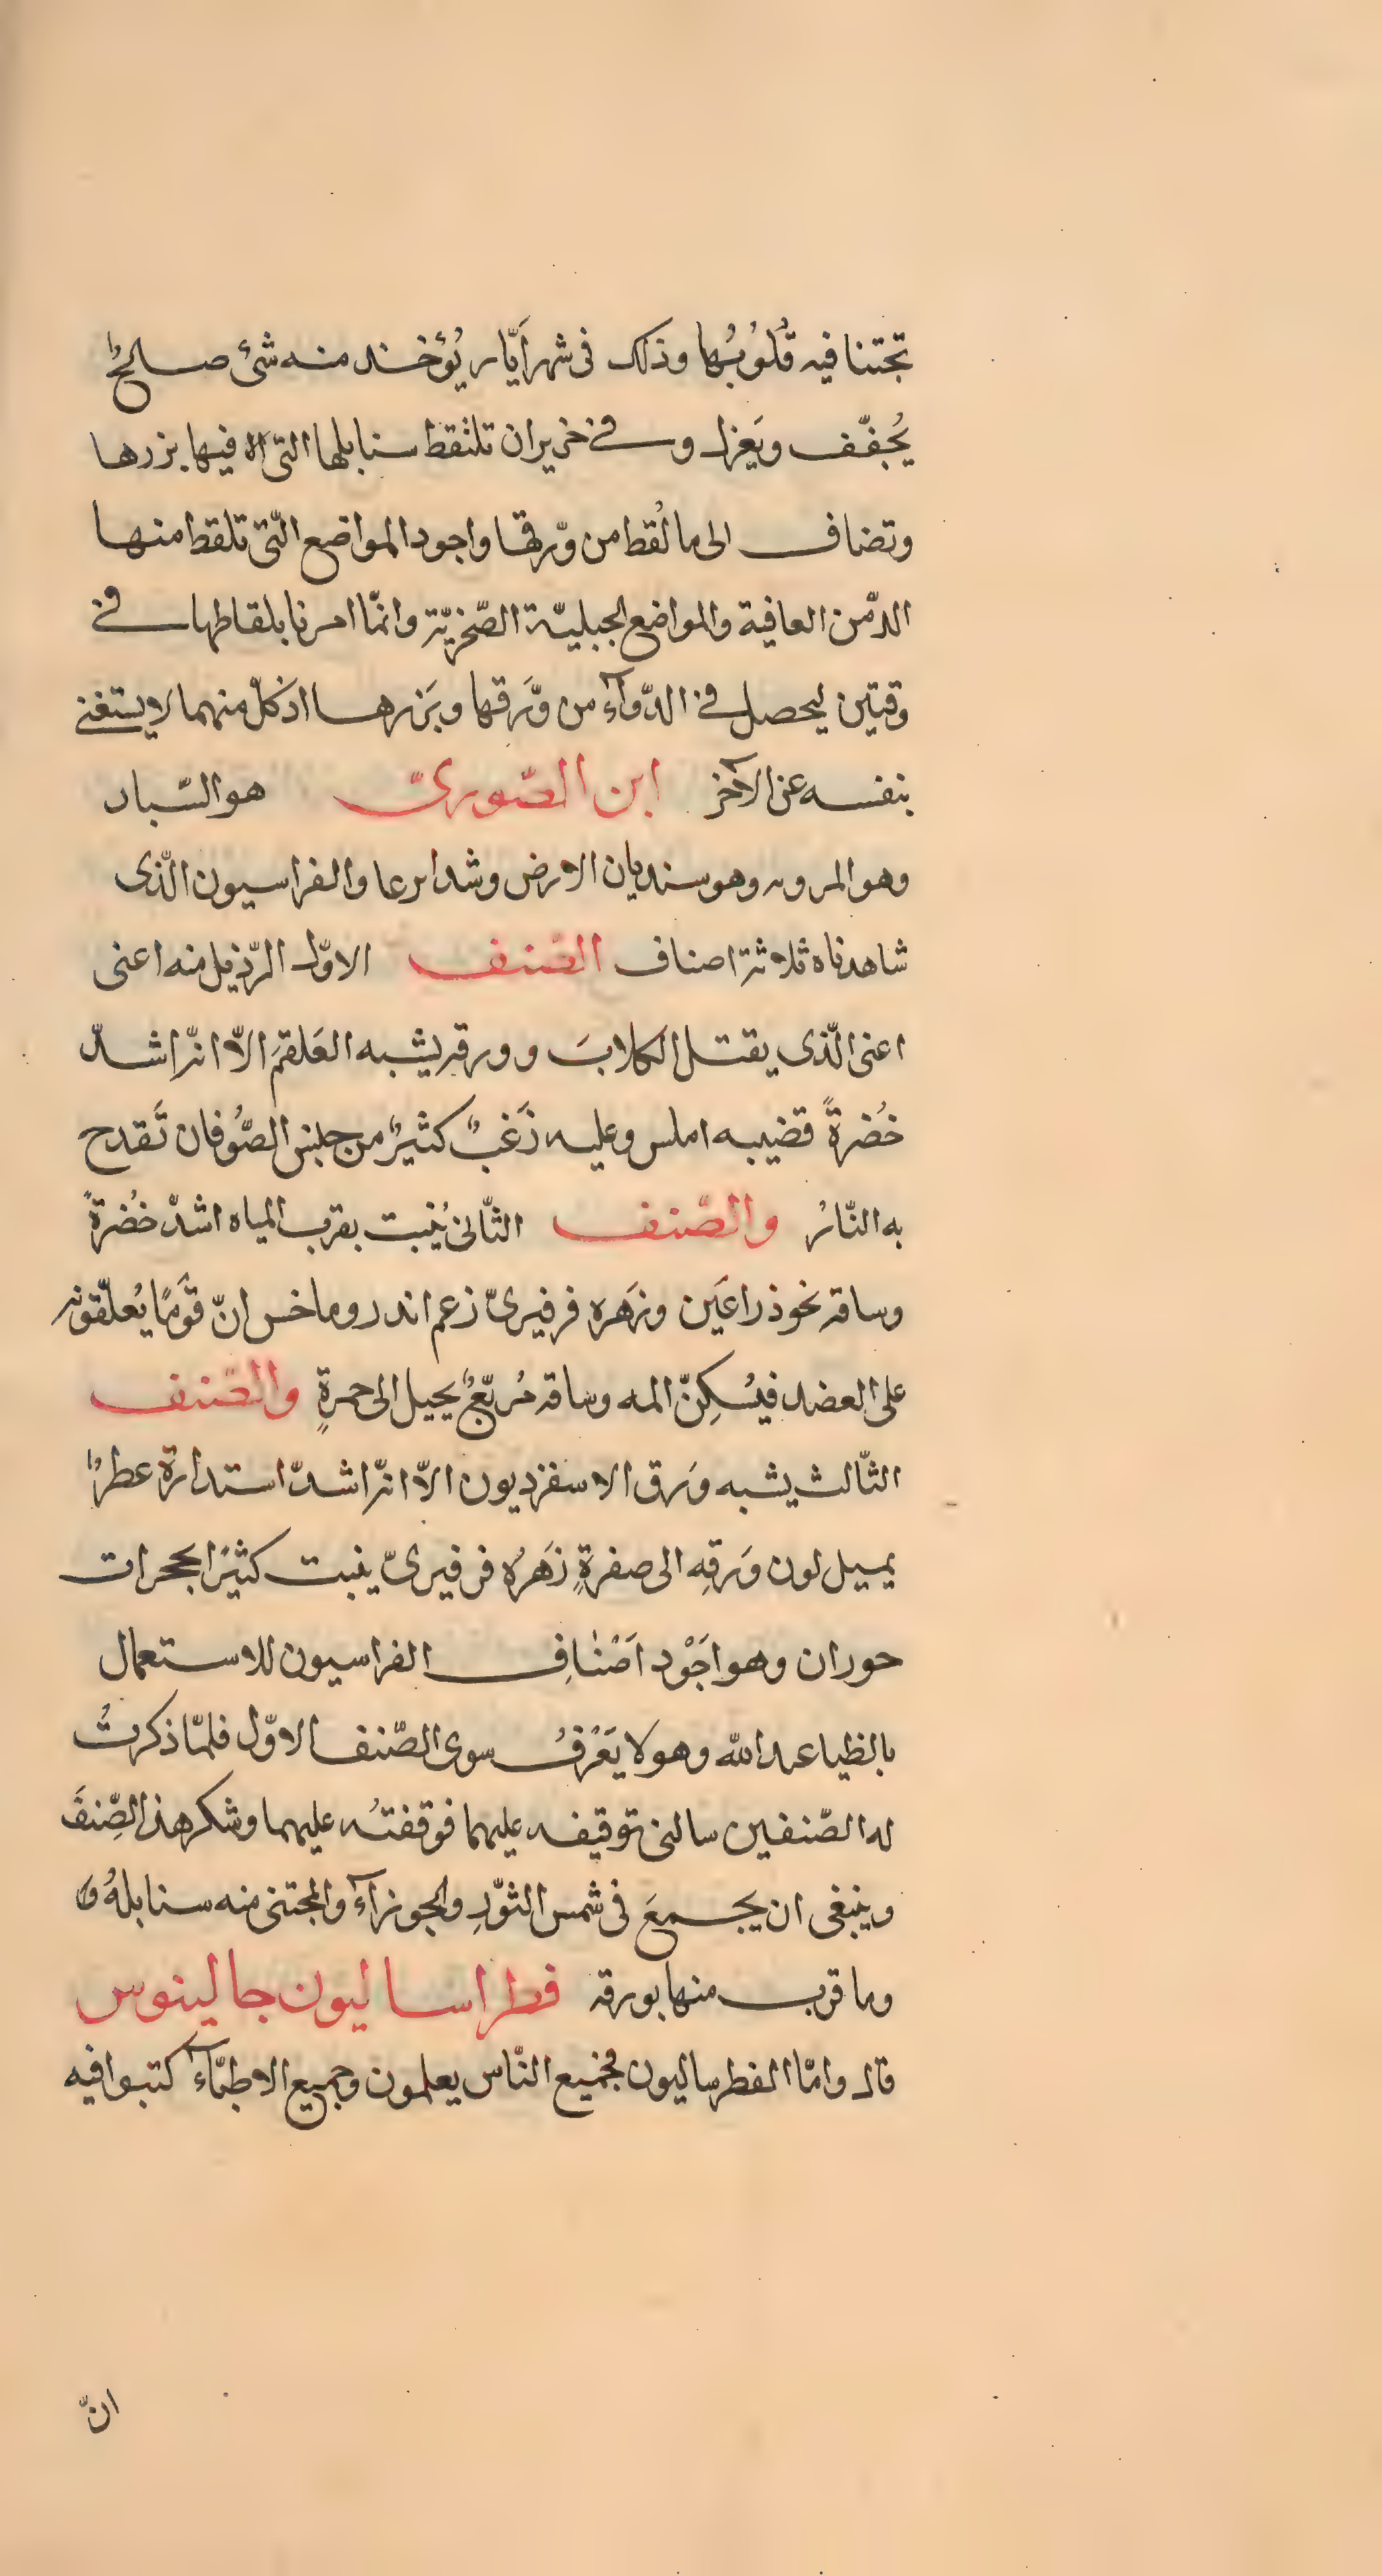 تجتنا فيه قُلُوُبُها وذلك فى شهر أَيّار يُؤخذ منه شئ صالحٌ
يُجفّف ويَعزل وفى خزيران تلتقط سنابلها التى فيها بزرها
وتضاف الى ما لُقط من وّرقها واجود المواضع الّتى تلقط منها
الدّمن العافية والمواضع الجبليّة الصّخريّة وانمّا امرنا بلقاطها فى
وقتين ليحصل فى الدّوآء من وَّرقها وبَزرها اذ كلّ منهما لا يستغنى
بنفسه عن الآخر ابن الصّورىّ هو السّبار
وهو المرويه وهو سنديان الارض وشدا برعا والفراسيون الّذى
شاهدناه ثلاثة اصناف الصّنف الاوّل الرّذيل منه اعنى
اعنى الّذى يقتل الكلابَ وورقه يشبه العَلقمَ الاّ انّه اشدّ
خُضرةً قضيبه املس وعليه زَغبٌ كثيرٌ من جنس الصُّوفان تَقدح
به النّارُ والصّنف الثّانى يُنبت بقرب المياه اشدّ خُضرةً
وساقه نحو ذراعَين وزَهره فرفيرىّ زعم اندروماخس انّ قَومًا يُعلّقونه
على العضد فيُسكِنّ المه وساقه مُربّعٌ يحيل الى حمرةٍ والصّنف
الثّالث يشبه وَرق الاسفرديون الاّ انّه اشدّ استدارة عطرٌ
يميل لون وَرقِه الى صفرةٍ زَهرُه فرفيرىّ ينبت كثيًرا بحجرات
حوران وهو اَجَوْد اَصْنَافِ الفراسيون للاستعمال
بالظيا عبد الله وهو لا يَعْرفُ سوى الصّنف الاوّل فلمّا ذكرتُ
له الصّنفين سالنى توقيفه عليهما فوقفتُه عليهما وشكر هذا الصِّنفَ
وينبغى ان يجمعَ فى شمس الثوّرِ والجوزآء والمجتنى منه سنابلهُ وَ
وما قرب منها بورقه فطراساليون جالينوس
قال وامّا الفطرساليون فجميع النّاس يعلمون وجميع الاطبّآء كتبوا فيه
انّ